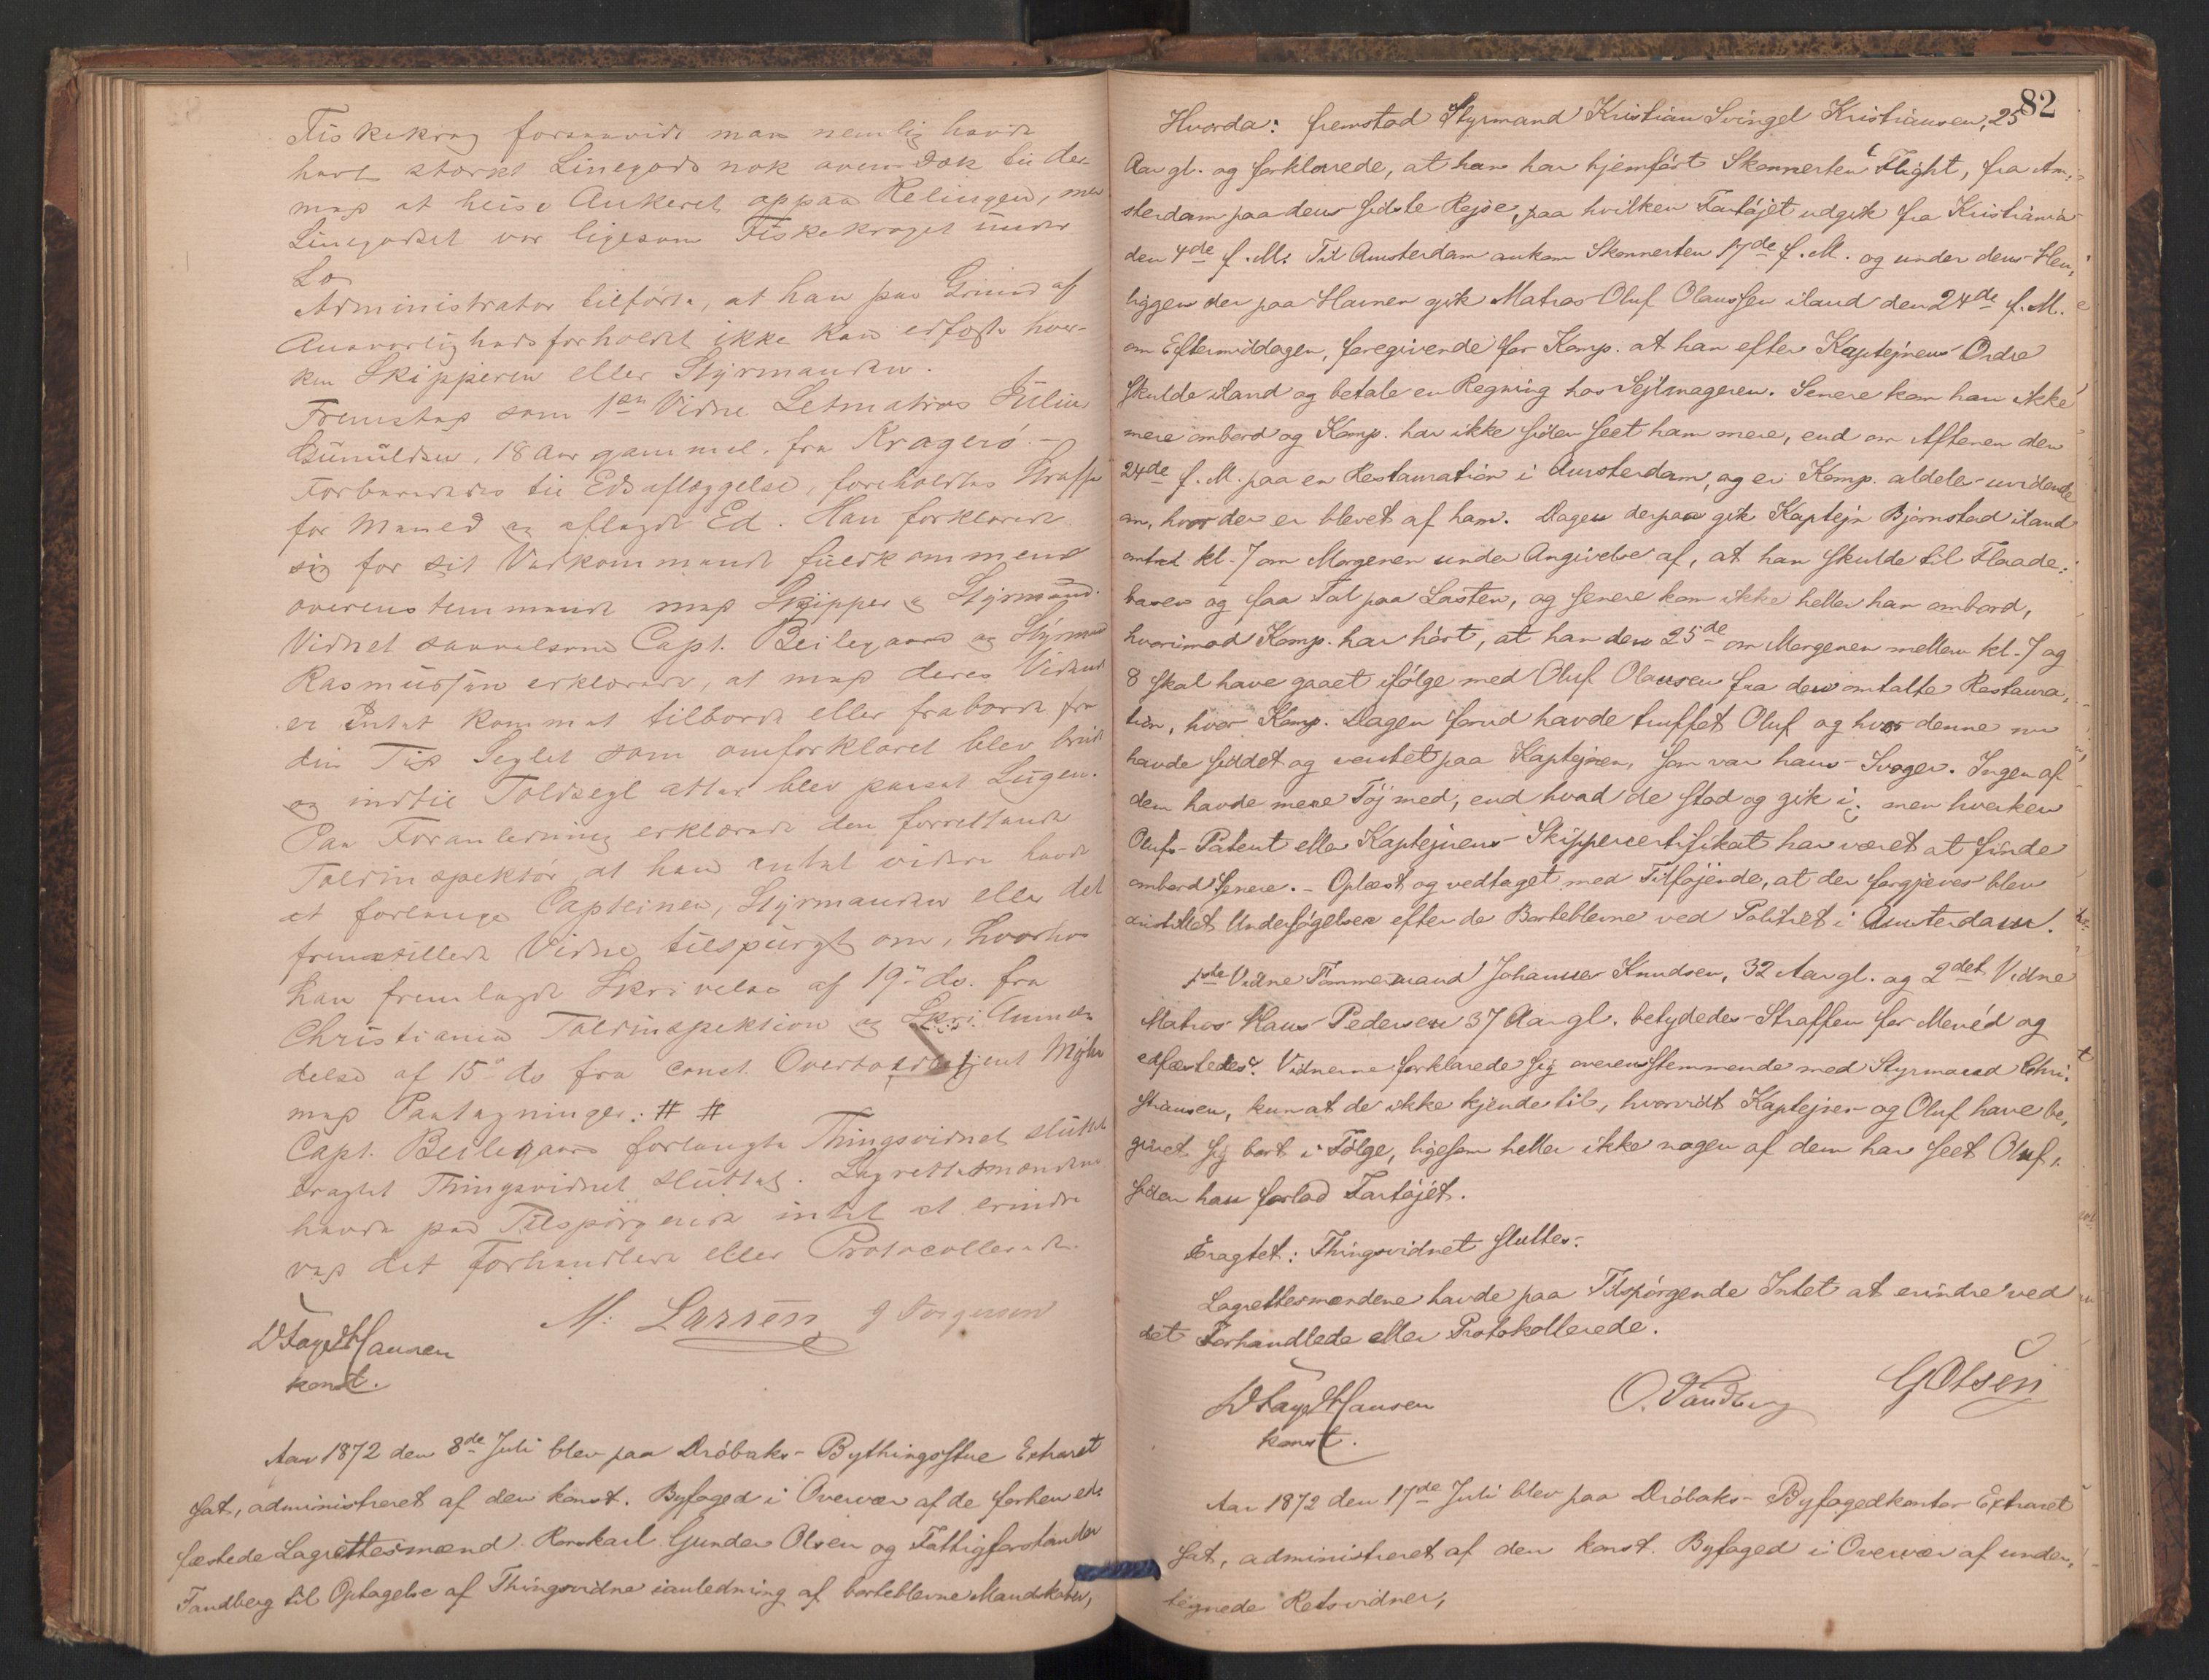 Fiskekrog forsaavidt man nemlig havde
havt stærkt Linegods nok ovendæk til der
med at heise Ankeret oppaa Relingen, men
Linegodset var ligesom Fiskekroget under
Administrator tilførte, at han paa Grund af
Ansvarlighedsforholdet ikke kan edfæste hver-
ken Skipperen eller Styrmanden.
Fremstod som 1ste Vidne Letmatros Julius
Gunuldsen, 18 Aar gammel, fra Kragerø. -
Forberededes til Edsaflæggelse, foreholdtes Straffen
for Meneed og aflagde Ed. Han forklarede
sig for sit Vedkommende fuldkommen
overenstemmende med Skipper og Styrmand.
Vidnet saavelsom Capt. Beilegaard og Styrmand
Rasmussen erklærede, at med deres Vidende
er Intet kommet tilborde eller fraborde fra
den Tid Seglet som omforklaret blev brudt
og indtil Toldsegl atter blev paasat Lugen.
Paa Foranledning erklærede den forrettende
Toldinspektør, at han intet videre havde
at forlange Capteinen, Styrmanden eller det
fremstillede Vidne tilspurgt om, hvorhos
han fremlagde Skrivelse af 19de ds. fra
Christiania Toldinspektion og Anmel-
delse af 15de ds fra const. Overtoldbetjent
med Paategninger: # #
Capt. Beilegaard forlangte Thingsvidnet sluttet
Eragtet Thingsvidnet sluttet. Lagrettesmændene
havde paa Tilspørgende intet at erindre
ved det Forhandlede eller Protocollerede.
M. Larsen J Torgersen
Hansen
konst.
Aar 1872 den 8de Juli blev paa Drøbaks Bythingsstue Extraret
sat, administreret af den konst. Byfoged i Overvær af de forhen ed-
fæstede Lagrettesmænd Gunder Olsen og Fattigforstander
Tandberg til Optagelse af Thingsvidne ianledning af borteblevne Mandskaber,
82
Hvorda: fremstod Styrmand Kristian Svingel Kristiansen, 25
Aar gl. og forklarede, at han har hjemført Skonnerten Flight, fra Am-
sterdam paa dens sidste Rejse, paa hvilken Fartøjet udgik fra Kristiania
den 4de f. M. Til Amsterdam ankom Skonnerten 17de f. M. og under dens Hen-
liggen der paa Havnen gik Matros Oluf Olaussen iland den 24de f. M.
om Eftermiddagen, foregivende for Komp. at han efter Kaptejnens Ordre
skulde iland og betale en Regning hos Sejlmageren. Senere kom han ikke
mere ombord og Komp. har ikke siden seet ham mere, end om Aftenen den
24de f. M. paa en Restauration i Amsterdam, og er Komp. aldeles uvidende
om, hvor der er blevet af ham. Dagen derpaa gik Kaptejn Bjørnstad iland
omtred kl. 7 om Morgenen under Angivelse af, at han skulde til Flaade-
baser og faa Tal paa Lasten, og senere kom ikke heller han ombord,
hvorimod Komp. har hørt, at han den 25de om Morgenen mellem kl. 7 og
8 skal have gaaet ifølge med Oluf Olausen fra den omtalte Restaura-
tion, hvor Komp. Dagen forud havde truffet Oluf og hvor denne nu
havde siddet og ventet paa Kaptejnen, som var hans Svoger. Ingen af
dem havde mere Tøj med, end hvad de stod og gik i; men hverken
Olufs Patent eller Kaptejnens Skippercertifikat har været at finde
ombord senere. - Oplæst og vedtaget med Tilføjende, at der forgjæves blev
anstillet Undersøgelser efter de Borteblevne ved Politiet i Amsterdam.
1ste Vidne Tømmermand Johannes Knudsen, 32 Aar gl. og 2det Vidne
Matros Klaus Pedersen 37 Aar gl. betydedes Straffen for Menéd og
edfæstedes. Vidnerne forklarede sig overensstemmende med Styrmand Chri-
stiansen, kun at de ikke kjende til, hvorvidt Kaptejnen og Oluf have be-
givet sig bort i Følge, ligesom heller ikke nogen af dem har seet Oluf,
siden han forlod Fartøjet.
Eragtet: Thingsvidnet sluttes.
Lagrettesmændene havde paa Tilspørgende Intet at erindre ved
det Forhandlede eller Protokollerede.
Hansen
konst.
O. Tandberg
G Olsen
Aar 1872 den 17de Juli blev paa Drøbaks Byfogedkontor Extraret
sat, administreret af den konst. Byfoged i Overvær af under-
tegnede Retsvidner,